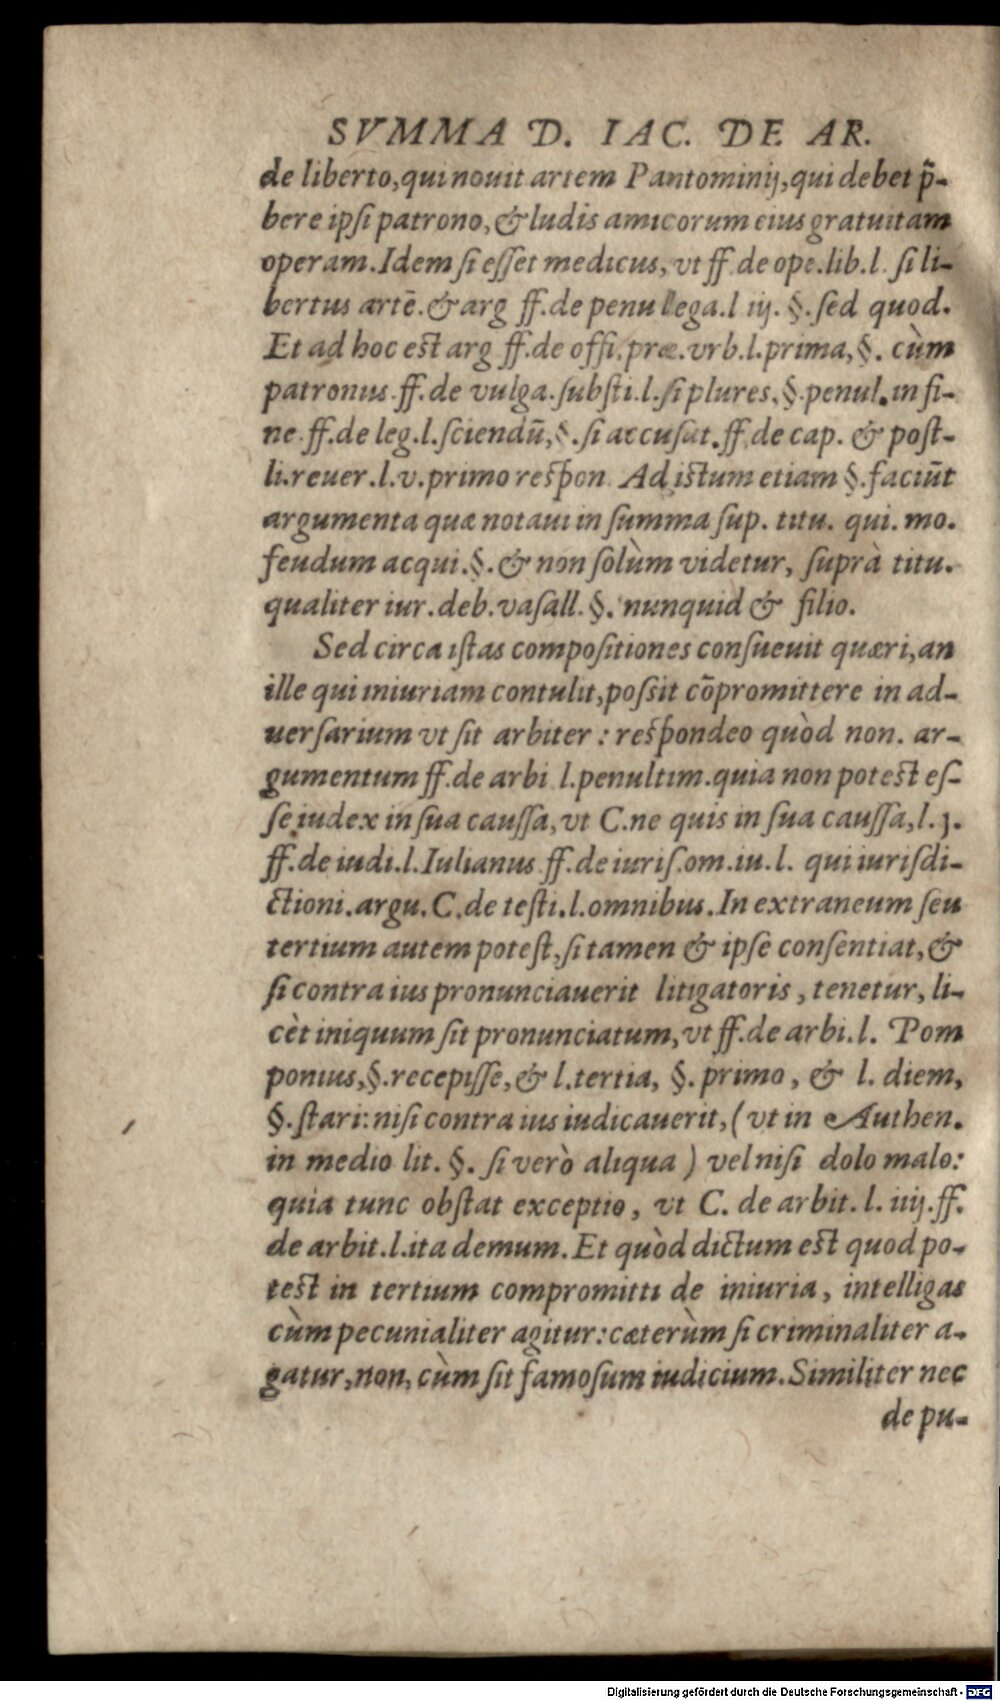 SVMMA D. IAC. DE AR.
de liberto, qui nouit artem Pantominij, qui debet p̃-
bere ipſi patrono, & ludis amicorum eius gratuitam
operam. Idem ſi eſſet medicus, vt ff. de ope. lib. l. ſi li-
bertus artē. & arg ff. de penu lega. l iij. §. ſed quod.
Et ad hoc est arg ff. de offi. præ. vrb. l. prima, §. cùm
patronus. ff. de vulga. ſubſti. l. ſi plures, §. penul. in fi-
ne. ff. de leg. l. ſciendū, §. ſi accuſat. ff. de cap. & poſt-
li. reuer. l. v. primo reſpon. Ad iſtum etiam §. faciūt
argumenta quæ notaui in ſumma ſup. titu. qui. mo.
feudum acqui. §. & non ſolùm videtur, ſuprà titu.
qualiter iur. deb. vaſall. §. nunquid & filio.
Sed circa iſtas compoſitiones conſueuit quæri, an
ille qui iniuriam contulit, poſsit cōpromittere in ad-
uerſarium vt ſit arbiter : reſpondeo quòd non. ar-
gumentum ff. de arbi l. penultim. quia non potest eſ-
ſe iudex in ſua cauſſa, vt C. ne quis in ſua cauſſa, l. j.
ff. de iudi. l. Iulianus ff. de iuriſ. om. iu. l. qui iuriſdi-
ctioni. argu. C. de teſti. l. omnibus. In extraneum ſeu
tertium autem poteſt, ſi tamen & ipſe conſentiat, &
ſi contra ius pronunciauerit litigatoris, tenetur, li-
cèt iniquum ſit pronunciatum, vt ff. de arbi. l. Pom
ponius, §. recepiſſe, & l. tertia, §. primo, & l. diem,
§. ſtari: niſi contra ius iudicauerit, ( vt in Authen.
in medio lit. §. ſi verò aliqua ) vel niſi dolo malo:
quia tunc obſtat exceptio, vt C. de arbit. l. iiij. ff.
de arbit. l. ita demum. Et quòd dictum est quod po-
test in tertium compromitti de iniuria, intelligas
cùm pecunialiter agitur: cæterùm ſi criminaliter a-
gatur, non, cùm ſit famoſum iudicium. Similiter nec
de pu-
Digitalisierung gefördert durch die Deutsche Forschungsgemeinschaft - DFG